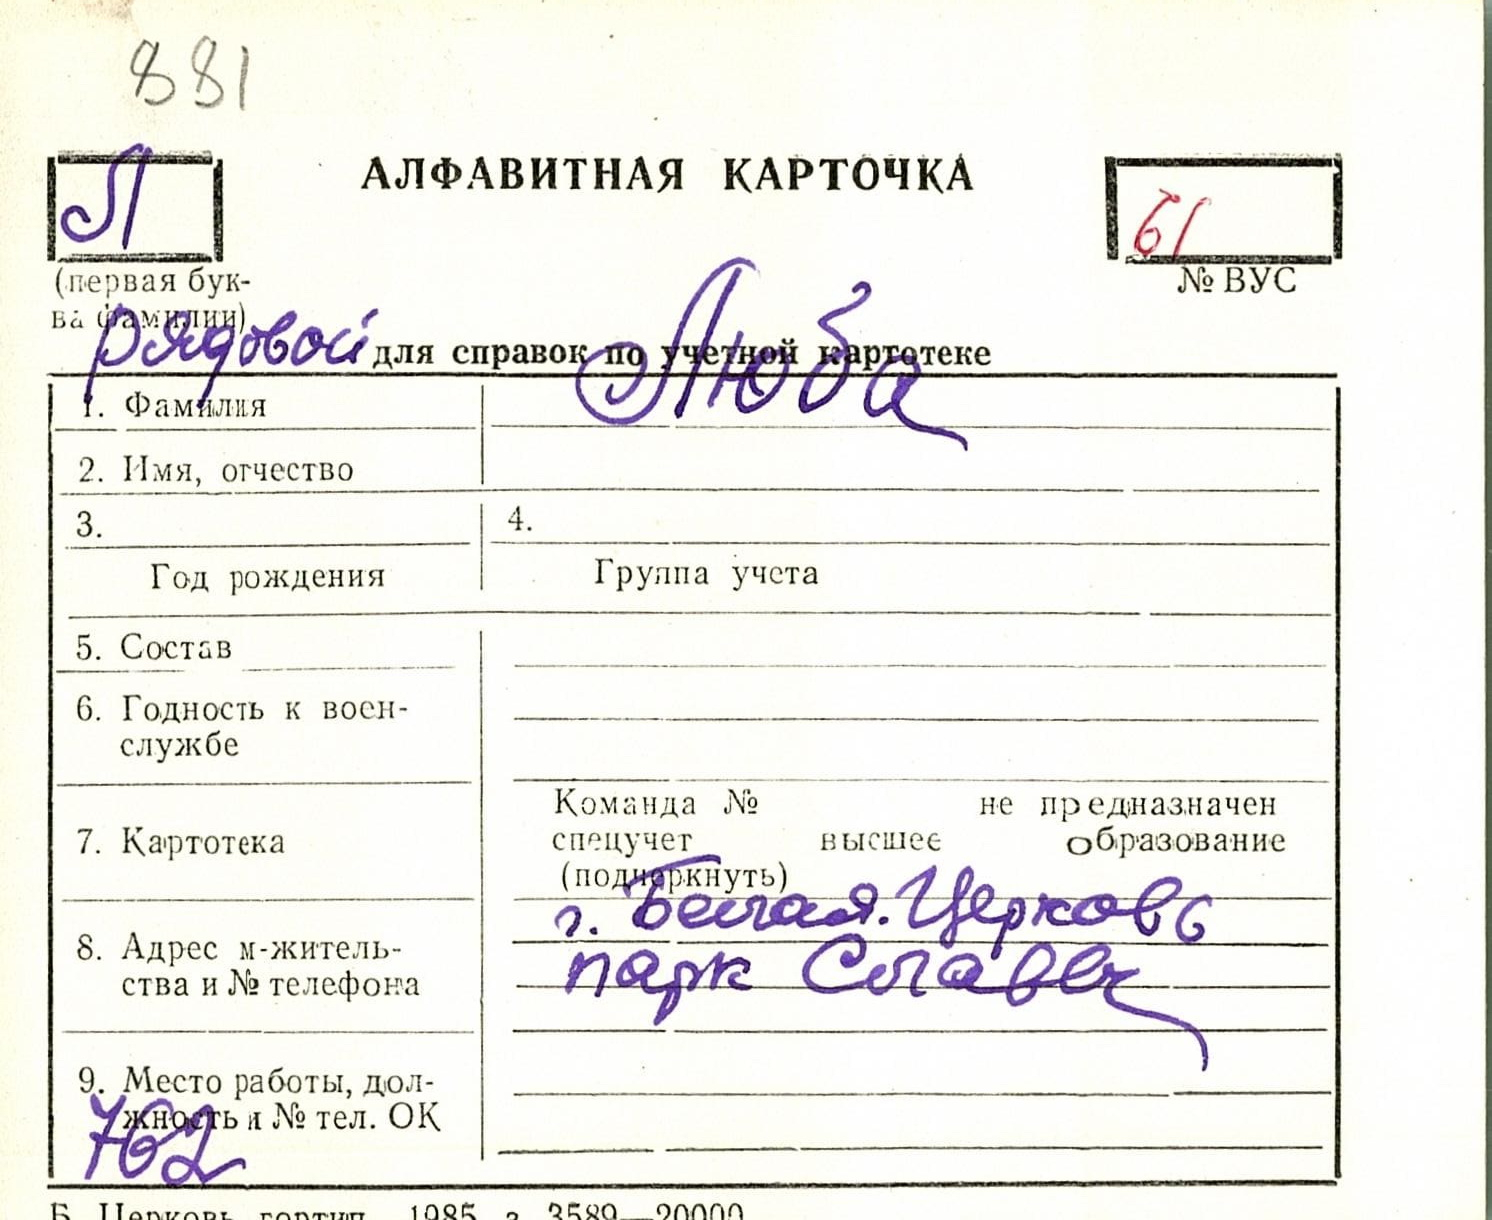 881
Л
АЛФАВИТНАЯ КАРТОЧКА
61
(первая бук-
ва фамилии)
№ ВУС
рядовой для справок по учетной картотеке
1. Фамилия Люба
2. Имя, отчество
3. 4.
Год рождения Группа учета
5. Состав
6. Годность к воен-
службе
7. Картотека
Команда № не предназначен
спецучет высшее образование
(подчеркнуть)
8. Адрес м-житель-
ства и № телефона
г. Белая. Церковь
парк Славы
9. Место работы, дол-
жность и № тел. ОК
762
Б. Церковь, гортип. 1985 з. 3589—20000